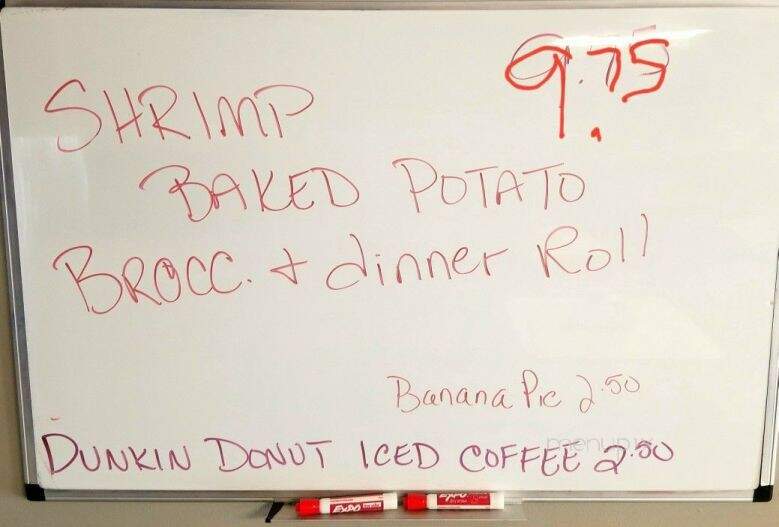 9.75
SHRIMP
BAKED POTATO
BROCC. + dinner Roll
Banana Pie 2.50
DUNKIN DONUT ICED COFFEE 2.50
EXPO
EXPO